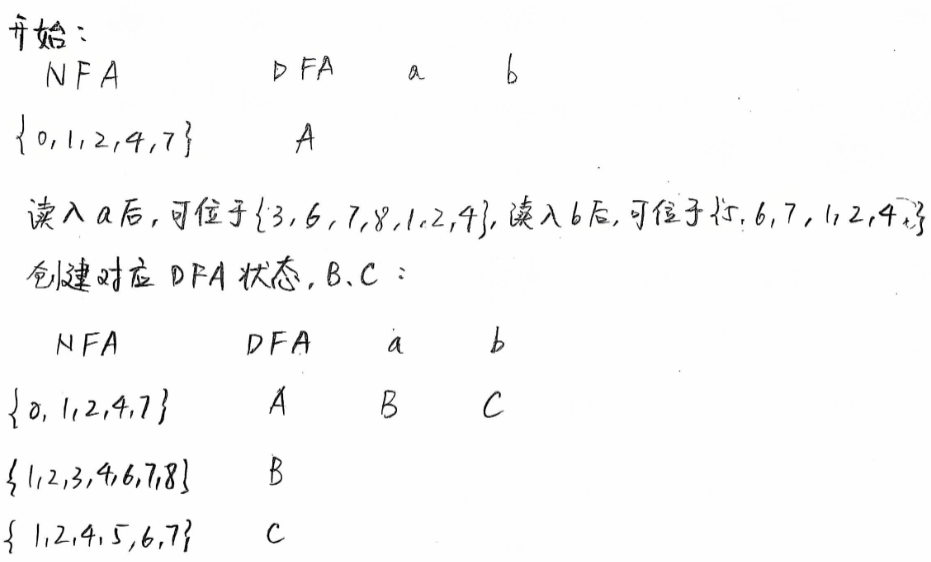 开始:
NFA DFA a b
{0,1,2,4,7} A
读入a后,可位于{3,6,7,8,1,2,4},读入b后,可位于{5,6,7,1,2,4}
创建对应 DFA 状态,B、C:
NFA DFA a b
{0,1,2,4,7} A B C
{1,2,3,4,6,7,8} B
{1,2,4,5,6,7} C